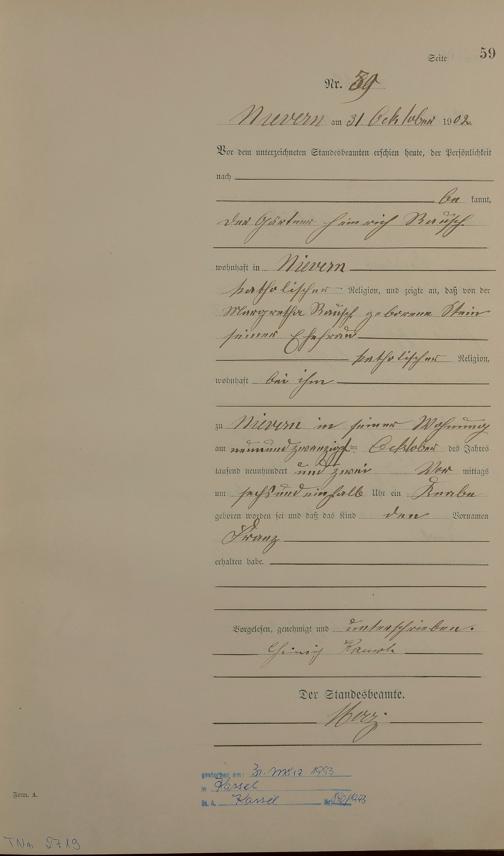 Seite 59
Nr. 39
Nievern am 31 Oktober 1902
Vor dem unterzeichneten Standesbeamten erschien heute, der Persönlichkeit
nach
be kannt,
der Gärtner Heinrich Bausch
wohnhaft in Nievern
katholischer Religion, und zeigte an, daß von der
Margretha Bausch geborene Stein
seiner Ehefrau
katholischer Religion,
wohnhaft bei ihm
zu Nievern in seiner Wohnung
am neunundzwanzigst Ocktober des Jahres
tausend neunhundert und zwei Vor mittags
um sechsundeinhalb Uhr ein Knabe
geboren worden sei und daß das Kind den Vornamen
Franz
erhalten habe.
Vorgelesen, genehmigt und unterschrieben.
Heinrich
Der Standesbeamte.
Form. A.
gestorben am: 31. März
in Kassel
St. A. Kassel Nr.
TNr. 5719